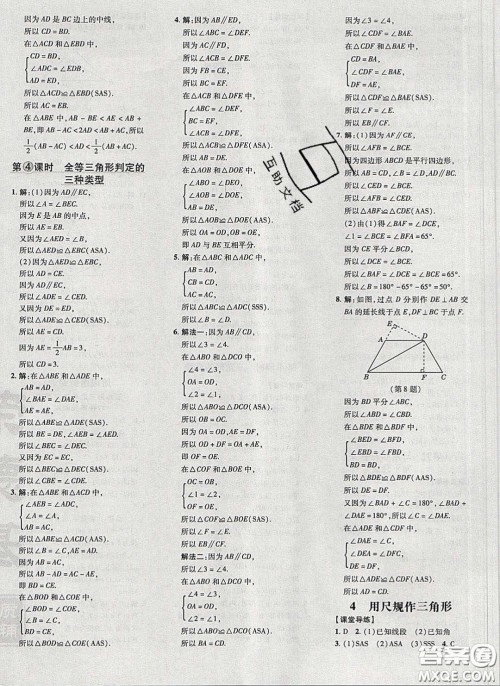 因为 AD 是 BC 边上的中线,
所以 CD=BD.
在△ACD 和△EBD 中,
CD=BD,
∠ADC=∠EDB,
AD=ED,
所以△ACD≌△EBD(SAS).
所以 AC=BE.
在△ABE 中,AB-BE<AE<AB+
BE,即 AB-AC<2AD<AB+AC.所以
1/2(AB-AC)<AD<1/2(AB+AC).
第④课时 全等三角形判定的
三种类型
1. 解:(1)因为 AD∥EC,
所以∠A=∠BEC.
因为 E 是 AB 的中点,
所以 AE=BE.
又因为∠AED=∠B,
所以△AED≌△EBC(ASA).
(2)因为△AED≌△EBC,
所以 AD=EC.
因为 AD∥EC,
所以∠ADE=∠CED.
又因为 DE=ED,
所以△ADE≌△CED(SAS).
所以 AE=CD.
因为 AE=1/2 AB=3,
所以 CD=3.
2. 解:在△ABE 和△ADE 中,
AB=AD,
∠BAE=∠DAE,
AE=AE,
所以△ABE≌△ADE(SAS).
所以 BE=DE,∠AEB=∠AED.
所以∠BEC=∠DEC.
又因为 EC=EC,
所以△BEC≌△DEC(SAS).
所以∠CBE=∠CDE.
3. 解:在△ABE 和△ACD 中,
∠AEB=∠ADC,
∠A=∠A,
BE=CD,
所以△ABE≌△ACD(AAS).
所以∠B=∠C,AE=AD.
因为 AB=AC,
所以 AB-AD=AC-AE.
即 BD=CE.
在△BDF 和△CEF 中,
∠B=∠C,
∠BFD=∠CFE,
BD=CE,
所以△BDF≌△CEF(AAS).
因为 AB∥DE,
所以∠ABC=∠DEF.
因为 AC∥FD,
所以∠ACB=∠DFE.
因为 FB=CE,
所以 BC=EF.
在△ACB 和△DFE 中,
∠ABC=∠DEF,
BC=EF,
∠ACB=∠DFE,
所以△ACB≌△DFE(ASA).
所以 AB=DE.
在△ABO 和△DEO 中,
∠ABO=∠DEO,
∠AOB=∠DOE,
AB=DE,
所以△ABO≌△DEO(AAS).
所以 AO=DO,BO=EO.
即 AD 与 BE 互相平分.
5. 解:在△ABC 和△ADC 中,
AB=AD,
CB=CD,
AC=AC,
所以△ABC≌△ADC(SSS).
所以∠B=∠D.
6. 解法一:因为 AB∥CD,
所以∠3=∠4.
在△ABO 和△DCO 中,
∠4=∠3,
∠1=∠2,
OA=OD,
所以△ABO≌△DCO(AAS).
所以 OB=OC.
因为 OA=OD,AE=DF,
所以 OA+AE=OD+DF.
即 OF=OE.
在△COF 和△BOE 中,
OC=OB,
∠1=∠2,
OF=OE,
所以△COF≌△BOE(SAS).
所以∠F=∠E.
所以 EB∥CF.
解法二:因为 AB∥CD,
所以∠3=∠4.
在△ABO 和△DCO 中,
∠4=∠3,
∠1=∠2,
OA=OD,
所以△ABO≌△DCO(AAS).
所以 BA=CD.
因为∠3=∠4,
所以∠CDF=∠BAE.
在△CDF 和△BAE 中,
CD=BA,
∠CDF=∠BAE,
DF=AE,
所以△CDF≌△BAE(SAS).
所以∠F=∠E.
所以 CF∥BE.
7. 解:(1)因为 AF∥CE,
因为四边形 ABCD 是平行四边形,
(2)由(1)得
∠1=∠BCE=65°.
因为 CE 平分∠BCD,
所以∠BAF=∠DCE=∠BCE=65°.
所以∠B=180°-65°-65°=50°.
8. 解:如图,过点 D 分别作 DE⊥AB 交
BA 的延长线于点 E,DF⊥BC 于点 F.
E
A
D
B
F
C
(第 8 题)
因为 BD 平分∠ABC,
所以∠EBD=∠FBD.
在△EBD 和△FBD 中,
∠DEB=∠DFB=90°,
BD=BD,
所以△EBD≌△FBD(AAS).
所以 ED=FD.
又因为∠BAD+∠C=180°,∠BAD+
∠DAE=180°,
所以∠DAE=∠C.
在△DAE 和△DCF 中,
∠DAE=∠C,
∠DEA=∠DFC,
DE=DF,
所以△DAE≌△DCF(AAS).
所以 AD=CD.
4 用尺规作三角形
【课堂导练】
1. D 2. (1)已知线段 (2)已知角
3. (1)SAS (2)ASA (3)SSS 4. C
互助文档
答案圈
MXQE.COM